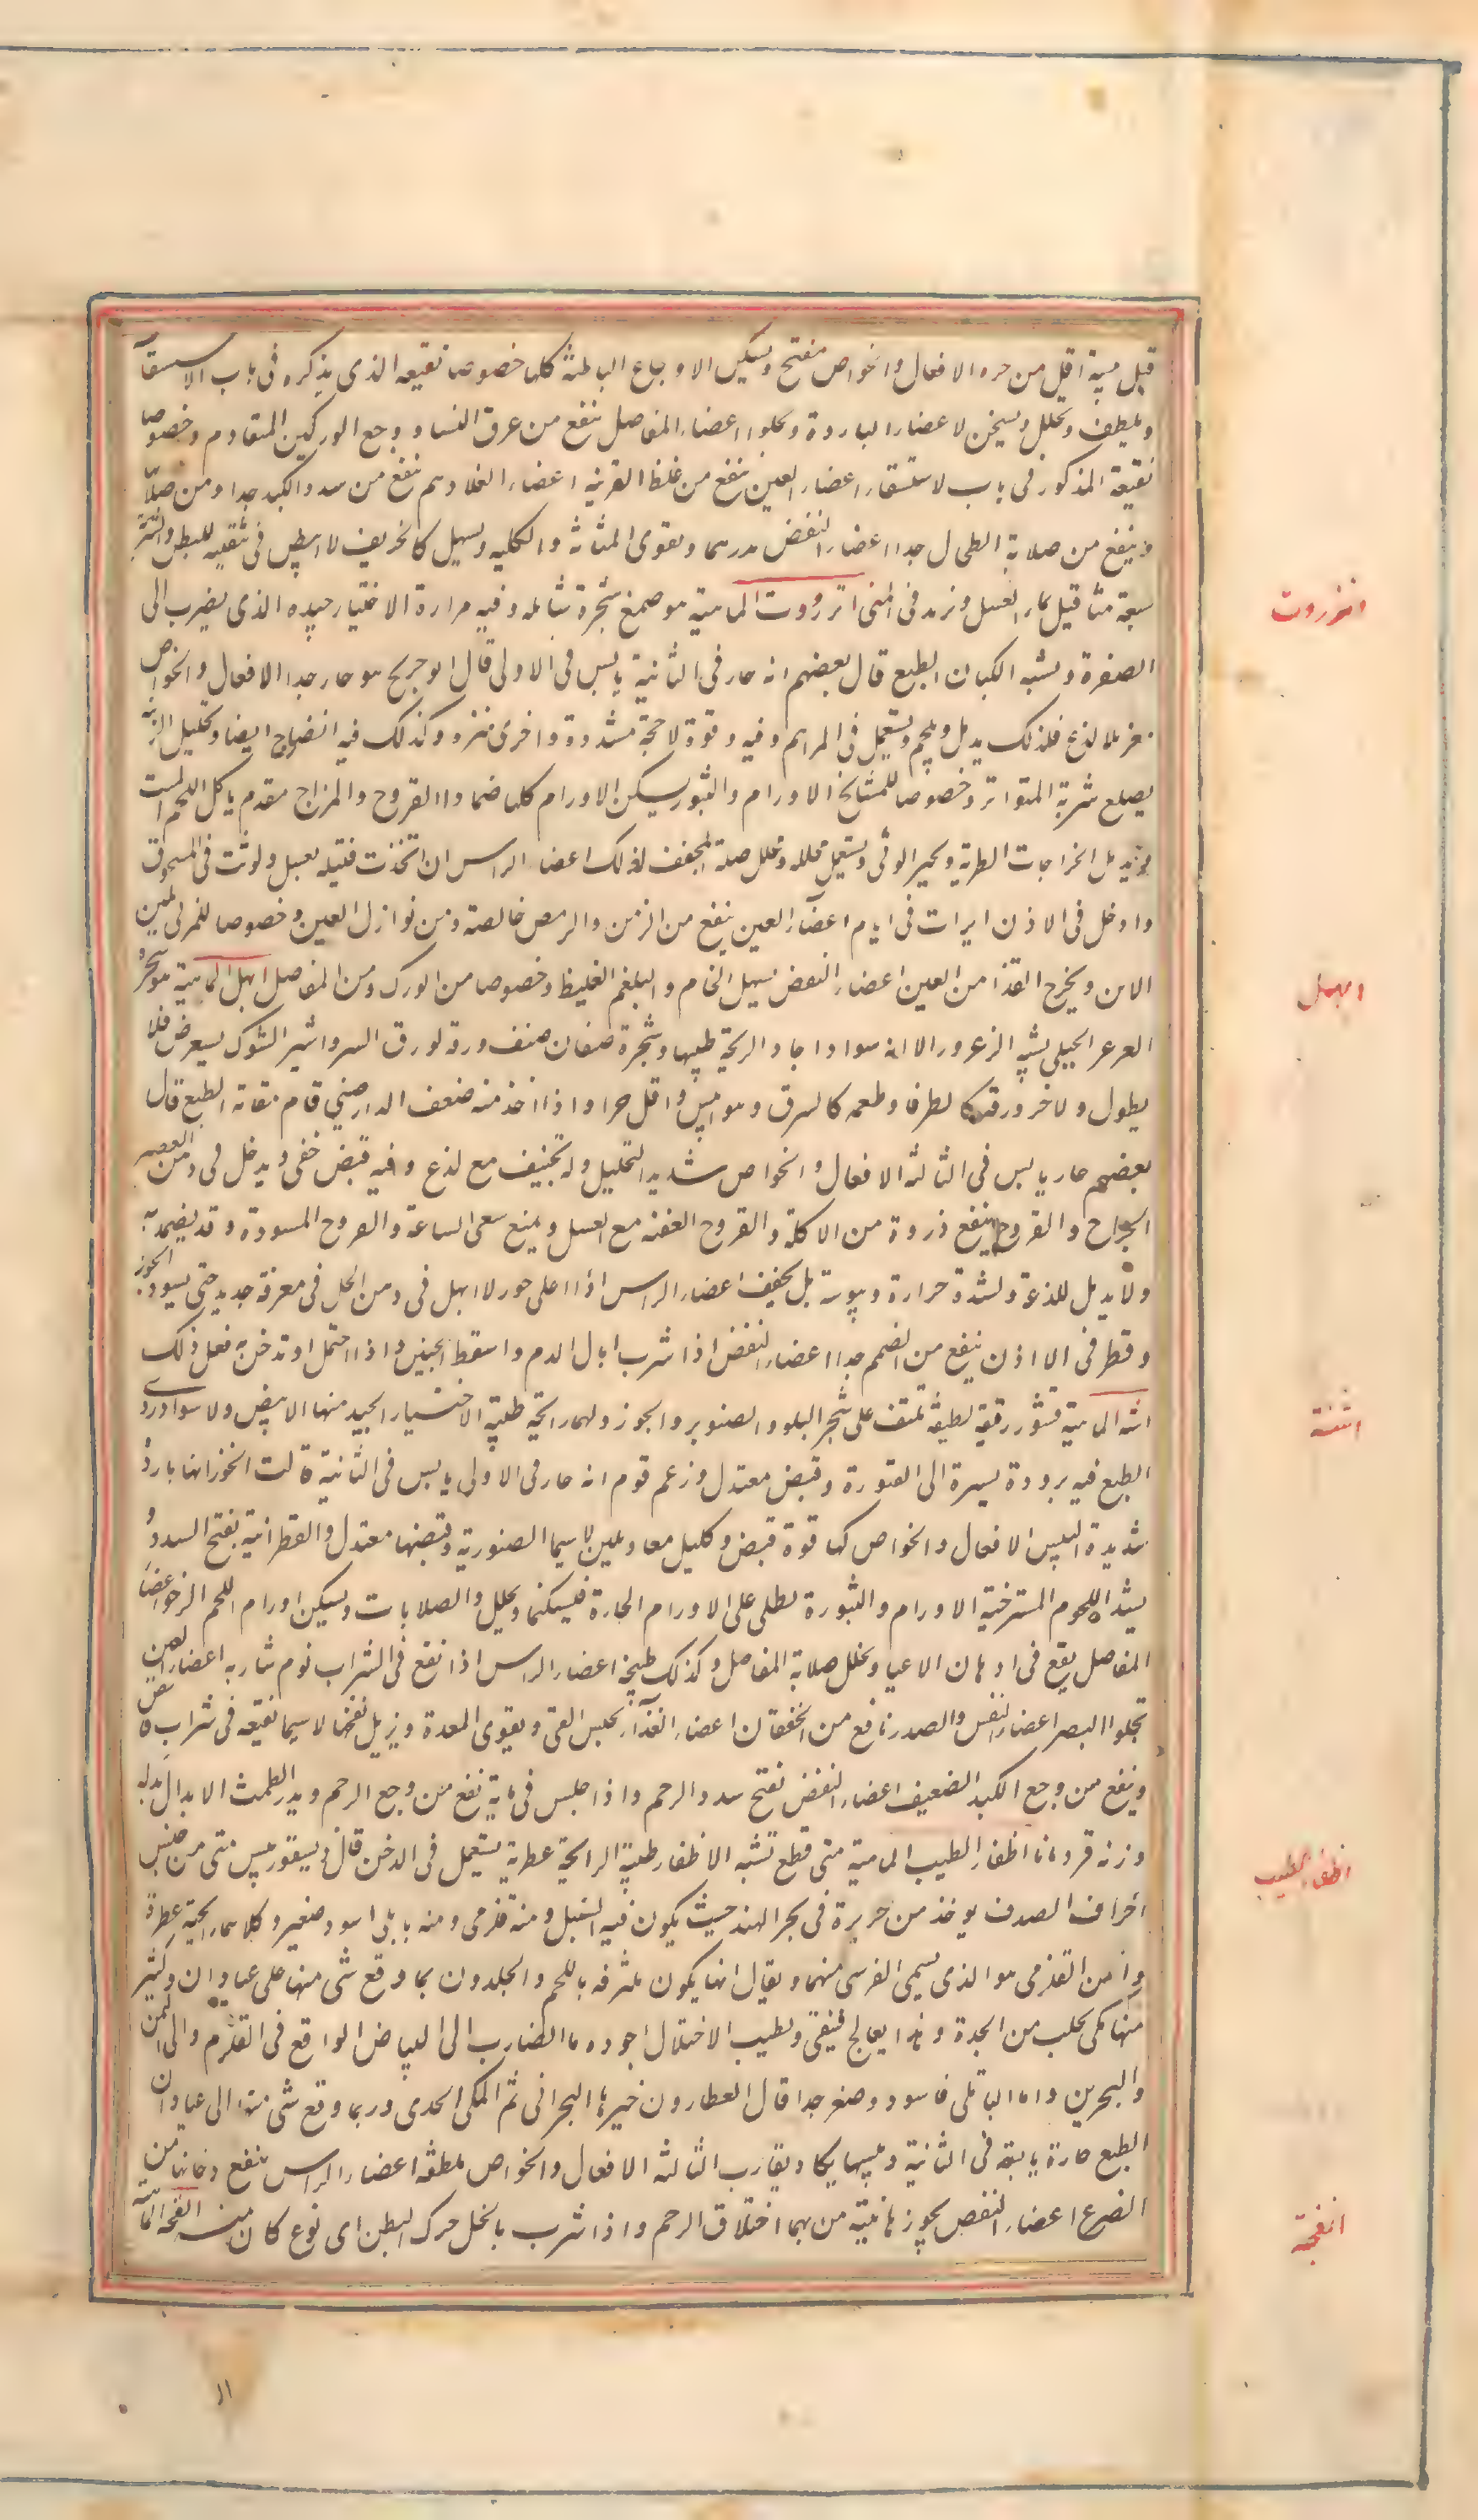 قيل يبسه اقل من حره الافعال والخواص مفتح ويسكن الاوجاع الباطنة كلها خصوصا نقيعه الذى يذكره فى باب الاستسقآ
ويلطف ويحلل ويسخن لاعضار الباردة ويحلوا اعضاء المفاصل ينفع من عرق النسا و ووجع الوركين المتقادم وخصوصا
نقيعه المذكور فى باب لاستسقاء اعضاء العين ينفع من غلظ القرنيه اعضاء الغذا وسم ينفع من سدد الكبد جدا ومن صلا
وينفع من صلابة الطحال جدا اعضاء النفض مدرهما ويقوى المثانة والكليه ويسهل كالخريف لابيض فى تنقيه للبطن والشربة
سبعة مثاقيل بماء العسل ونريد فى المنى انزروت الماهية هو صمغ شجرة شائكه وفيه مرارة الاختيار جيده الذى يضرب الى
الصفرة ويشبه الكبان الطبع قال بعضهم انه حار فى الثانية يابس فى الاولى قال ابو جريح هو حار جدا الافعال والخواص
مغر بلا لذع فلذلك يدمل ويلحم ويستعمل فى المراهم وفيه وقوة لاحجة مشددة واخرى منزو وكذلك فيه انضاج ايضا وتحليل
يصلع شربة المتواتر وخصوصا للمشايخ الاورام والبثور يسكن الاورام كلها ضمادا القروح والمزاج مقدم ياكل اللحم الميت
ويدمل الخراجات الطرية ويجبر الوثى ويستعمل محلله وتحلل صلبة المجفف لذلك اعضاء الراس ان اتخذت فتيله بعسل ولوثت فى المسحوق
وادخل فى الاذن ابرات فى ايام اعضآء العين ينفع من الزمن والرمص خالصة ومن نوازل العين وخصوصا للمربى بلبن
الاتن ويخرج القذا من العين اعضاء النفض يسهل الخام والبلغم الغليظ وخصوصا من الورك ومن المفاصل ابهل الماهية هو شجرة
العرعر الجبلى يشبه الزعرور الا انه سوادا حاد الريحة طيبها وشجرة صنفان صنف ورقه لورق السرو اثير الشوك يستعرض فلا
يطول ولاخر ورقه كالطرفا وطعمه كالسرق وهو ايبس واقل حرا واذا اخذ منه ضعف الدارصينى قام مقامه الطبع قال
بعضهم حار يابس فى الثالثه الافعال والخواص شديد التحليل وله تجفيف مع لذع وفيه قبض خفى ويدخل فى دهن العصير
الجراح والقروح ينفع ذروة من الاكلة والقروح العفنه مع العسل ويمنع سعى الساعة والقروح المسودة وقد يضمد به
ولا يدمل للذعة ولشدة حرارة ويبوسته بل يجفف اعضاء الراس اذا اعلى حور لابهل فى دهن الخل فى مغرفة حديد حتى يسود الجوز
وقطر فى الااذن ينفع من الصمم جدا اعضاء النفض اذا شرب ابال الدم واسقط الجنين واذا احتمل او تدخن به فعل ذلك
اشنه الماهية قشور رقيقة لطيفه تلتف على شجر البلوط والصنوبر والجوز ولها رايحة طيبة الاختيار الجيد منها الابيض ولاسوا دردى
الطبع فيه برودة يسيرة الى الفتورة وقبض معتدل وزعم قوم انه حار فى الاولى يابس فى الثانية قالت الخوز انها باردة
شديدة اليبس الافعال والخواص لها قوة قبض وكليل معا وبلين لاسيما الصنوبرية وقبضها معتدل والقطرانية يفتح السدد و
يشد اللحوم المسترخية الاورام والبثورة يطلى على الاورام الحارة فيسكنها ويحلل والصلابات ويسكن اورام اللحم الرخو اعضا
المفاصل يقع فى ادهان الاعيا ويحلل صلابة المفاصل وكذلك طبيخه اعضاء الراس اذا نقع فى الشراب نوم شاربه اعضاء العين
تجلوا البصر اعضاء النفس والصدر نافع من الخفقان اعضاء الغذآء يحبس القى ويقوى المعدة ويزيل نفخها لاسيما نقيعه فى شراب قابض
وينفع من وجع الكبد الضعيف اعضاء النفض نفتح سدد الرحم واذا جلس فى مايه نفع من وجع الرحم ويدر الطمث الابدال بدله
وزنه قردمانا اظفار الطيب الماهية متى قطع تشبه الاظفار طيبة الرايحة عطرية يستعمل فى الدخن قال ديسقوريدس متى من جنس
اخراف الصدف يوخذ من جزيرة فى بحر الهند حيث يكون فيه السنبل ومنه قلزمى ومنه بابلى اسود صغير وكلاهما رايحته عطرة
وامن القلزمى هو الذى يسمى القرشى منهما ويقال انها يكون ملتزقه باللحم والجلدون بما وقع شى منها على عبادان وكثير
منها مكى يجلب من الجدة وهذا يعالج فينقى ويطيب الاختلال اجوده ما الضارب الى البياض الواقع فى القلزم والى اليمن
والبحرين واما البابلى فاسود وصغير جدا قال العطارون خيرها البحرانى ثم المكى الجدى وربما وقع شى منها الى عبادان
الطبع حارة يابسة فى الثانية ويبسها يكاد يقارب الثالثه الافعال والخواص ملطفه اعضاء الراس ينفع دخانها من
الصرع اعضاء النفض بخورها ينبه من بهما اختلاق الرحم واذا شرب بالخل حرك البطن اى نوع كان منه انفحه الماهية
انزروت
ابهل
اشنة
اظفار الطيب
انفحة
١١